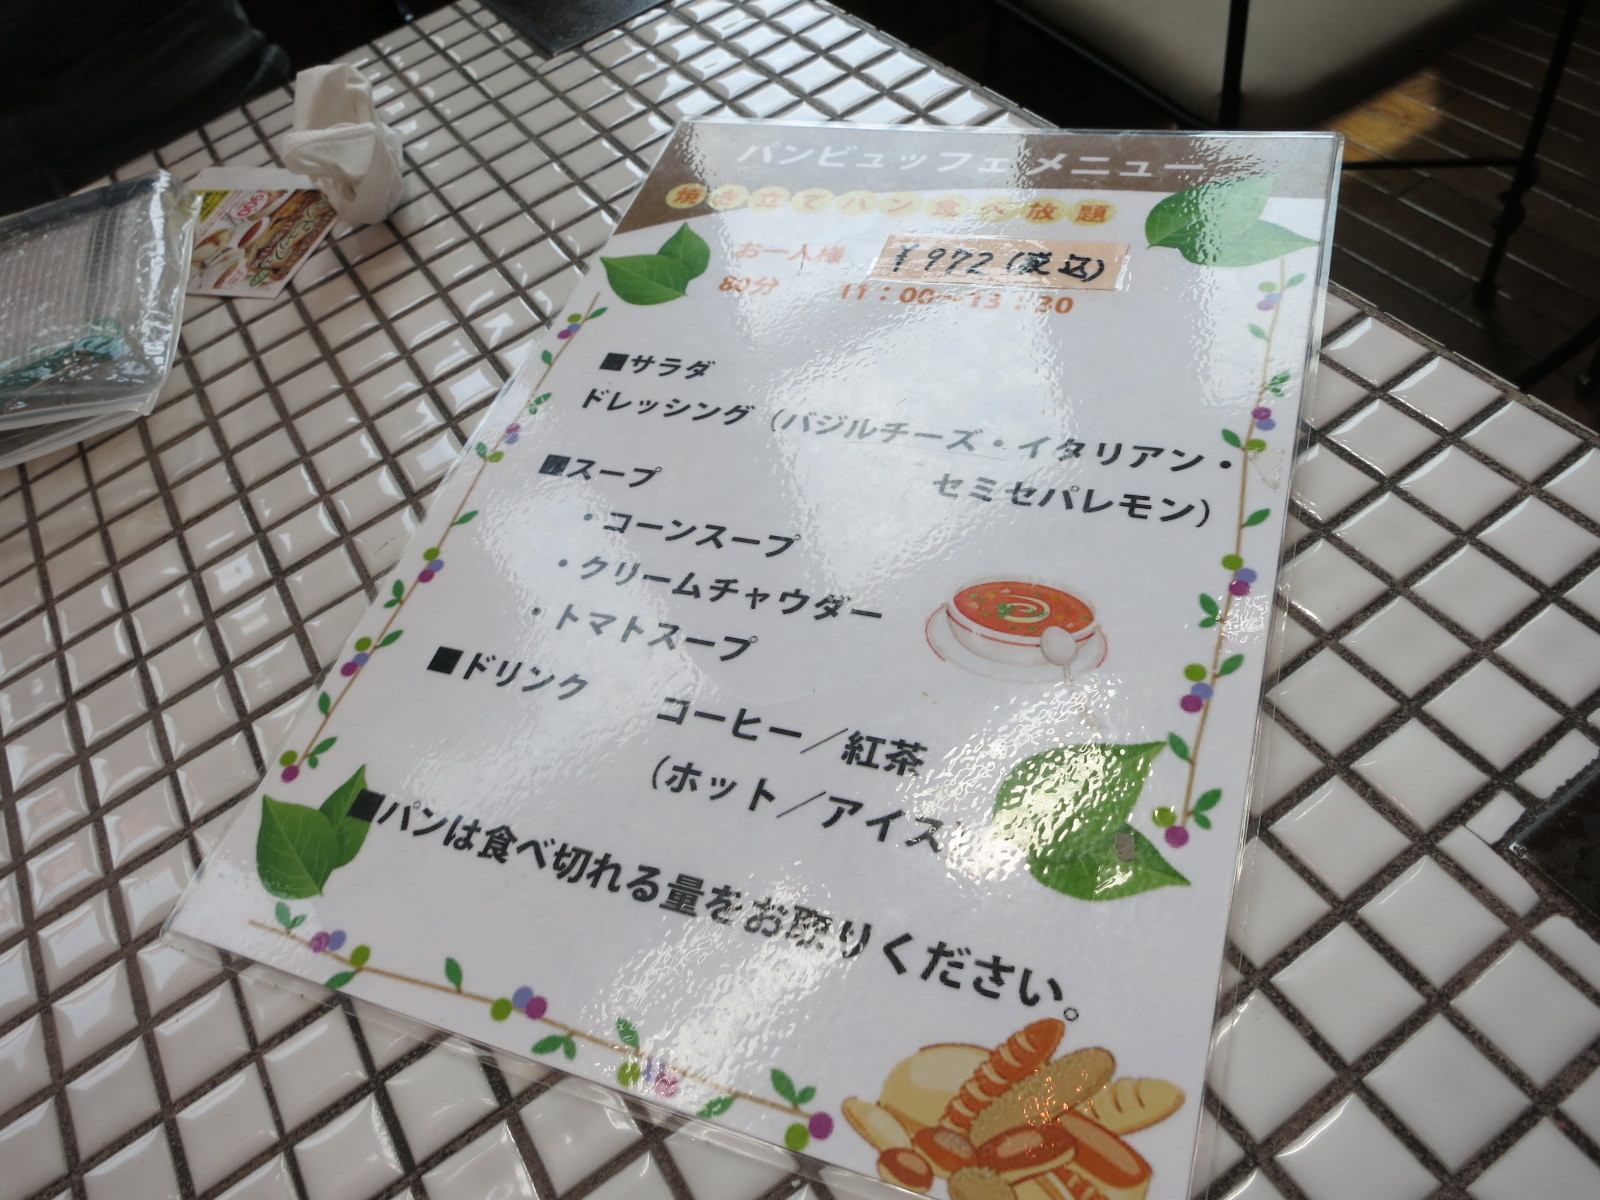 パンビュッフェ メニュー
焼き立てパン食べ放題
お一人様 ¥972(税込)
80分 11：00～13：30
■サラダ
ドレッシング（バジルチーズ・イタリアン・
セミセパレモン）
■スープ
・コーンスープ
・クリームチャウダー
・トマトスープ
■ドリンク コーヒー／紅茶
（ホット／アイス）
■パンは食べ切れる量をお取りください。